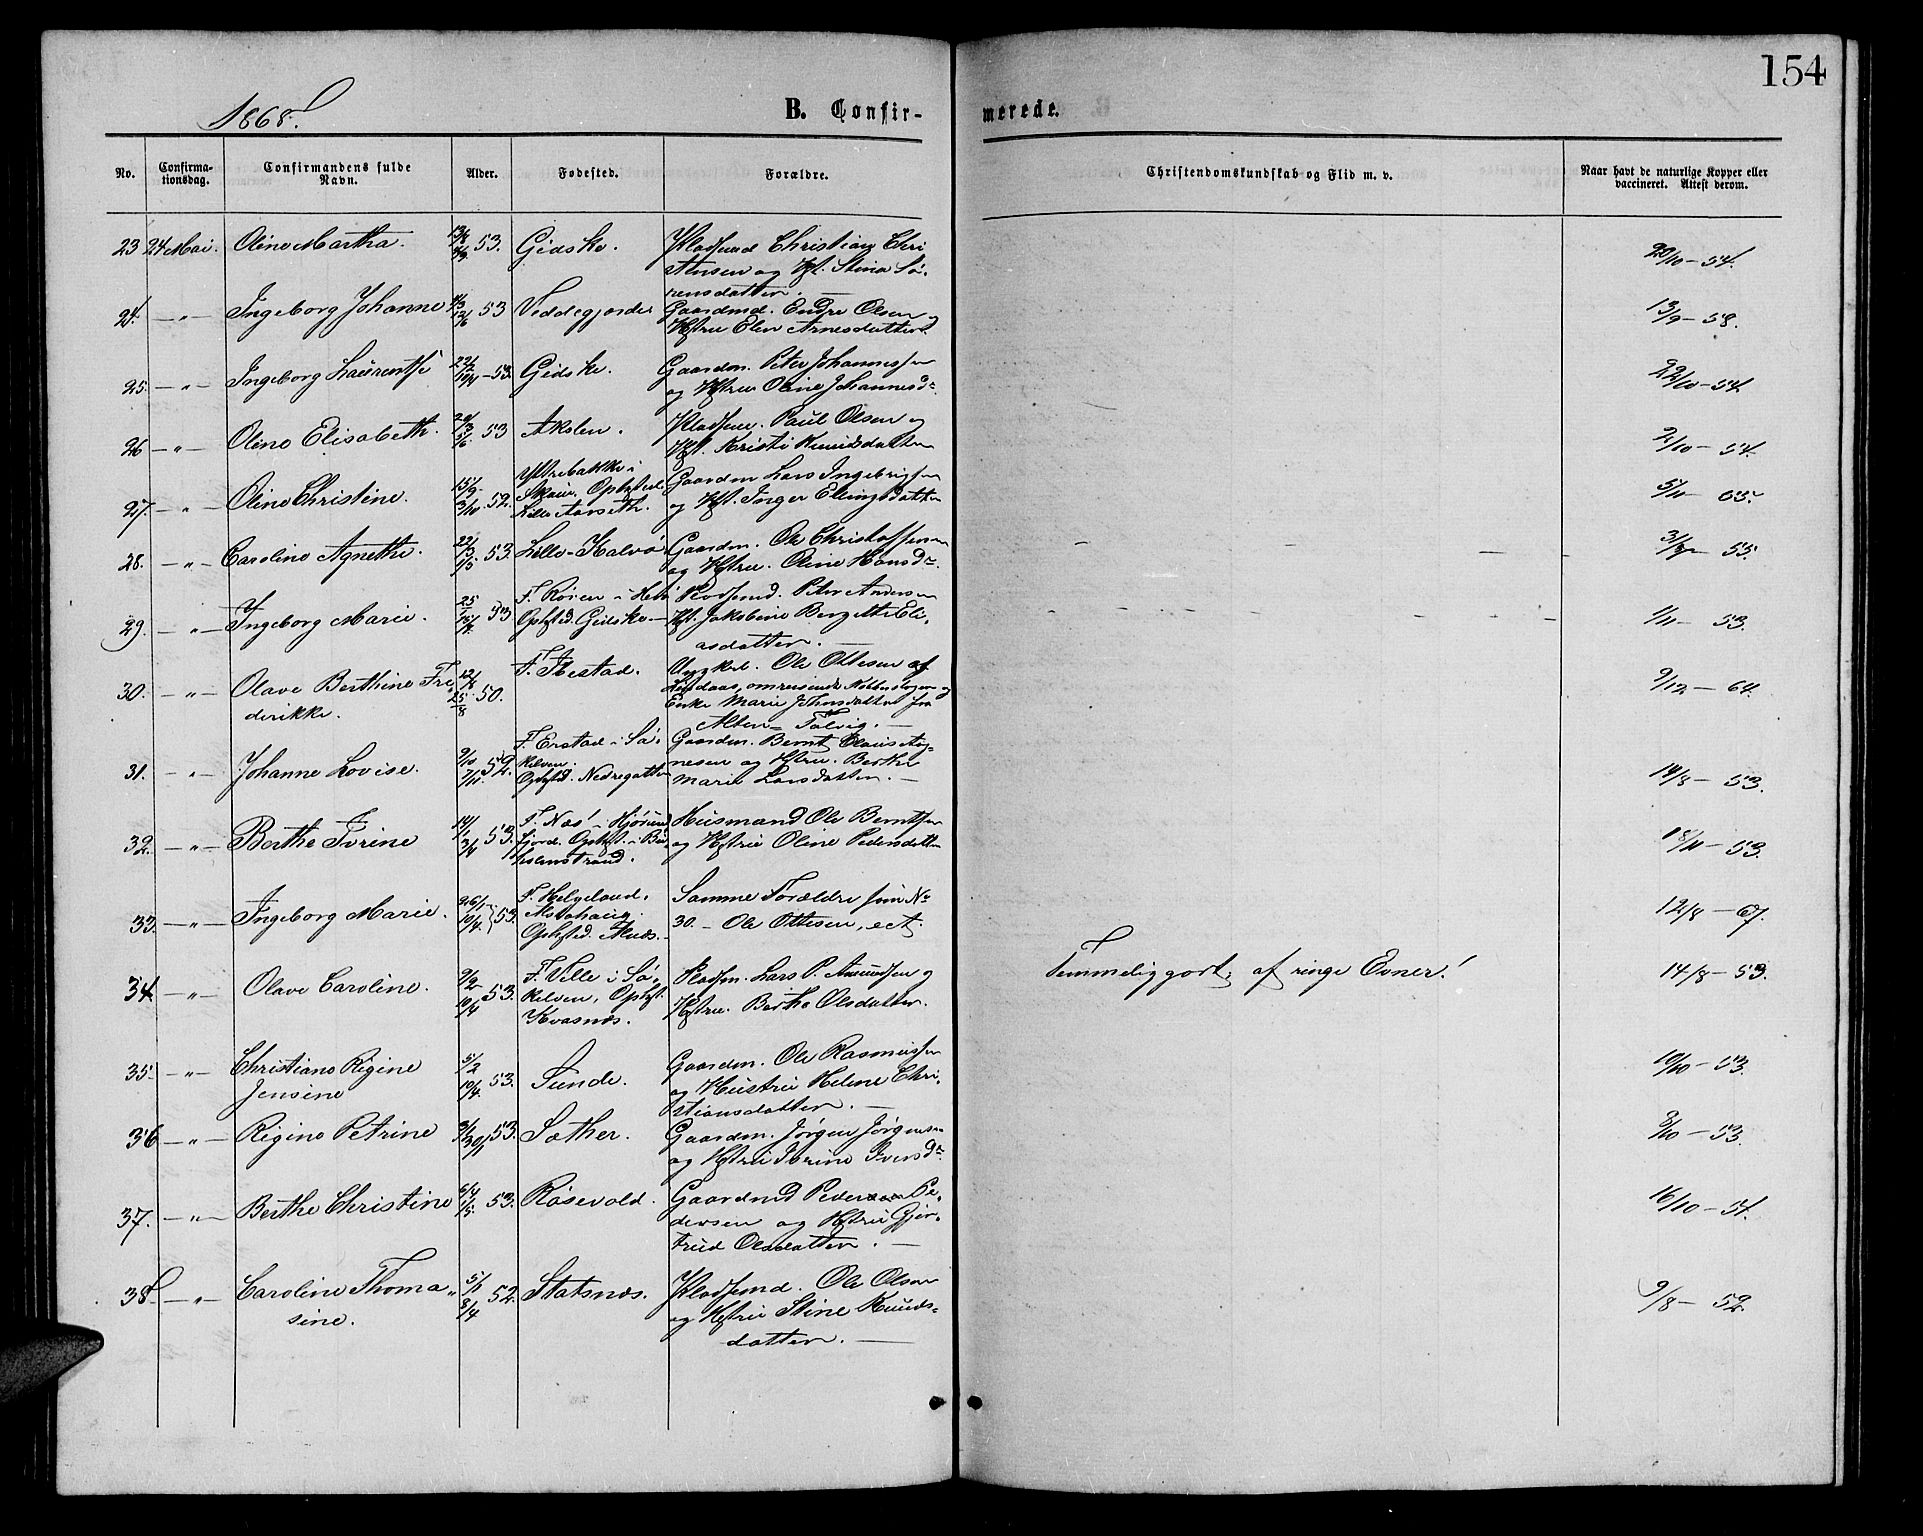 154
1868.
B. Confir-
merede.
No.
Confirma-
tionsdag.
Confirmandens fulde
Navn.
Alder.
Fødested.
Forældre.
Christendomskundskab og Flid m. v.
Naar havt de naturlige Kopper eller
vaccineret. Attest derom.
23 24 Mai. Oline Martha. 53. Gidske. Pladsmd Christian Chri
stensen og Hst. Stina Sø-
rensdatter. —
20/10 – 54.
24. — „ — Ingeborg Johanne 53 Gaardmd. Endre Olsen og
Hstru Elen Arnesdatter.
13/9 – 58.
25. — „ — Ingeborg Laurentse 53. Gidske. Gaardm. Peter Johannessen
og Hstru Oline Johannesdr.
22/10 – 54.
26 — „ — Oline Elisabeth. 53 Akslen. Pladsm. Paul Olsen og
Hst. Kristi Knudsdatter
2/10 – 54.
27. — „ — Oline Christine. 15/9 2/10 52. Yttrebakke i
Skaue. Opholdst.
Lille Aarseth.
Gaardm Lars Ingebrigtsen
og Hst. Inger Elingsdatter
5/11 – 65.
28. — „ — Caroline Agnethe. 53. Lille-Kalvø. Gaardm. Ole Christoffersen
og Hstru. Oline Hansdr.
– 55.
29. — „ — Ingeborg Marie. 53 F. Røren i
Opfsted. Gidske —
Pladsmd. Peter Andersen
Hst. Jakobine Bergitte Eli-
asdatter. —
1/11 – 53.
30. — „ — Olave Berthine Fre-
derikke.
50. F. Ibestad. Ungkrl. Ole Ottesen af
omreisende Kobberslager og
Enke Marie Johnsdatter fra
Alten – Talvig. —
9/12 – 64.
31. — „ — Johanne Lovise. 9/10 7/11 52. F. Erstad i Sø-
kelven.
Opfsted. Nedregotten
Gaardm. Bernt Claus Aag-
nesen og Hstru. Berthe
Marie Larsdatter. —
19/8 – 53.
32. — „ — Berthe Iverine 53. F. Næs i Hjørund
fjord. Opfst. i
Gaardm Husmand Ole Berntsen
og Hstru Oline Pedersdatter
18/11 – 53.
33. — „ — Ingeborg Marie. 26/1 10/4. 53. F. Helgeland,
Alstahaug.
Opfsted. Alnæs. —
Samme Forældre som No
30. – Ole Ottesen, ect.
12/8 – 67.
34 — „ — Olave Caroline. 9/2 10/4 53. F. Velle i Sø-
kelven, Opfst.
Kvasnæs.
Pladsm. Lars P. Amundsen og
Hstru. Berthe Olsdatter.
Temmelig godt; af ringe Evner!
14/8 – 53.
35. — „ — Christiane Rigine
Jensine
5/2 10/4 53. Sunde. Gaardm. Ole Rasmussen
og Hustru Helene Chri-
stiansdatter. —
19/10 – 53.
36 — „ — Rigine Petrine 53. Sæther. Gaardm. Jørgen Jørgensen
og Hstru Iverine Iversdr.
9/10 – 53.
37. — „ — Berthe Christine 53. Røsevold. Gaardmd Peder Pe-
dersen og Hstru Gjer-
trud Olsdatter. —
16/10 – 54.
38. — „ — Caroline Thoma-
sine.
5/1 8/4 52. Statsnæs. Pladsmd. Ole Olsen
og Hstru Stine Knuds-
datter. —
9/8 – 52.